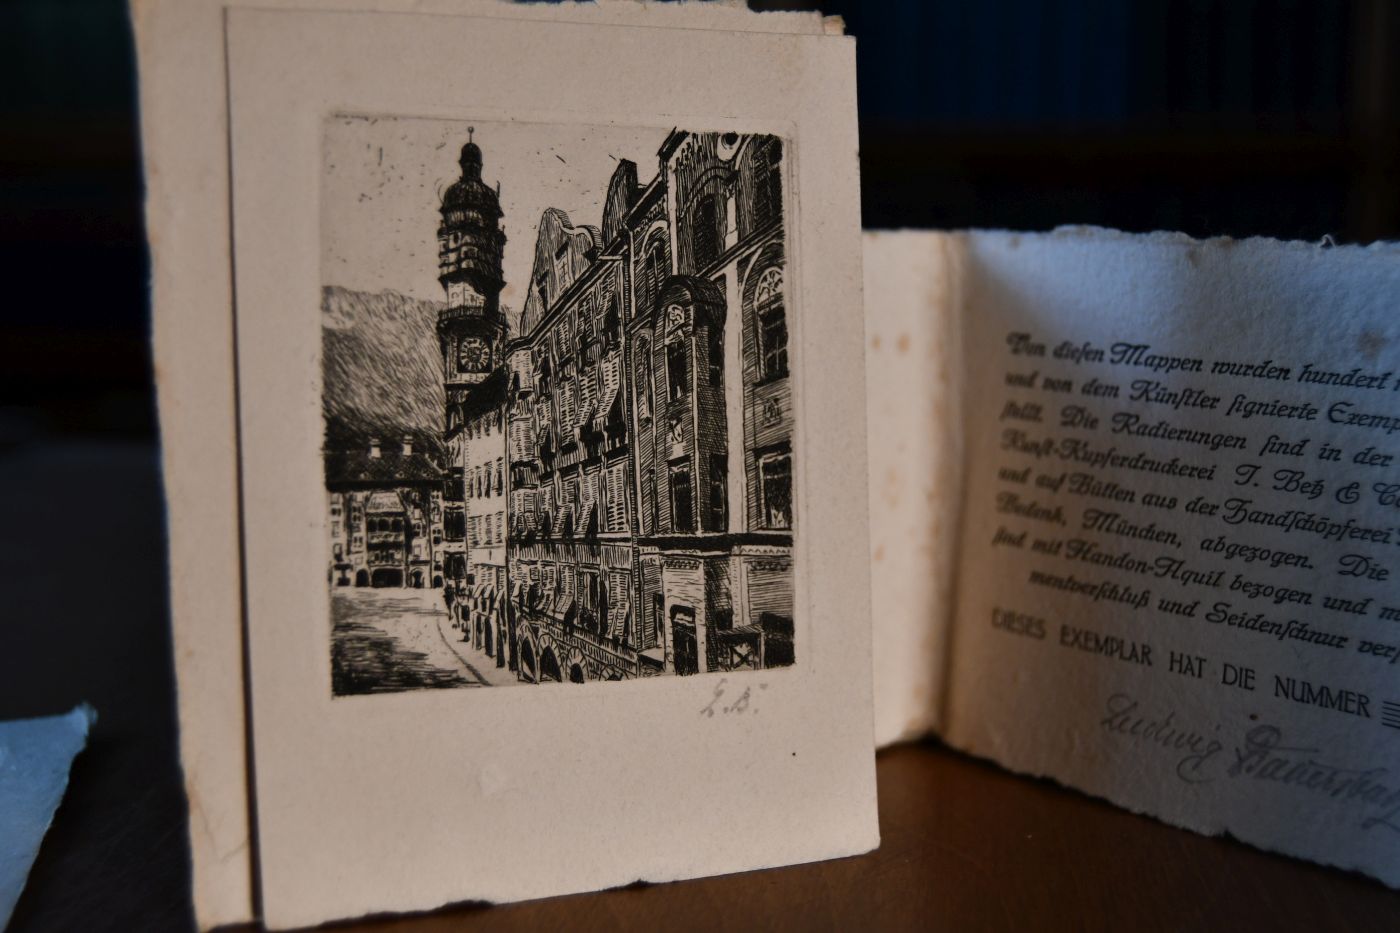 L.B.
Von diesen Mappen wurden hundert
und von dem Künstler signierte Exemp
stellt. Die Radierungen sind in der
Kunst-Kupferdruckerei J. Betz & C
und auf Bütten aus der Handschöpferei
München, abgezogen. Die
sind mit Handon-Aquil bezogen und m
mentverschluß und Seidenschnur ver
DIESES EXEMPLAR HAT DIE NUMMER
Ludwig